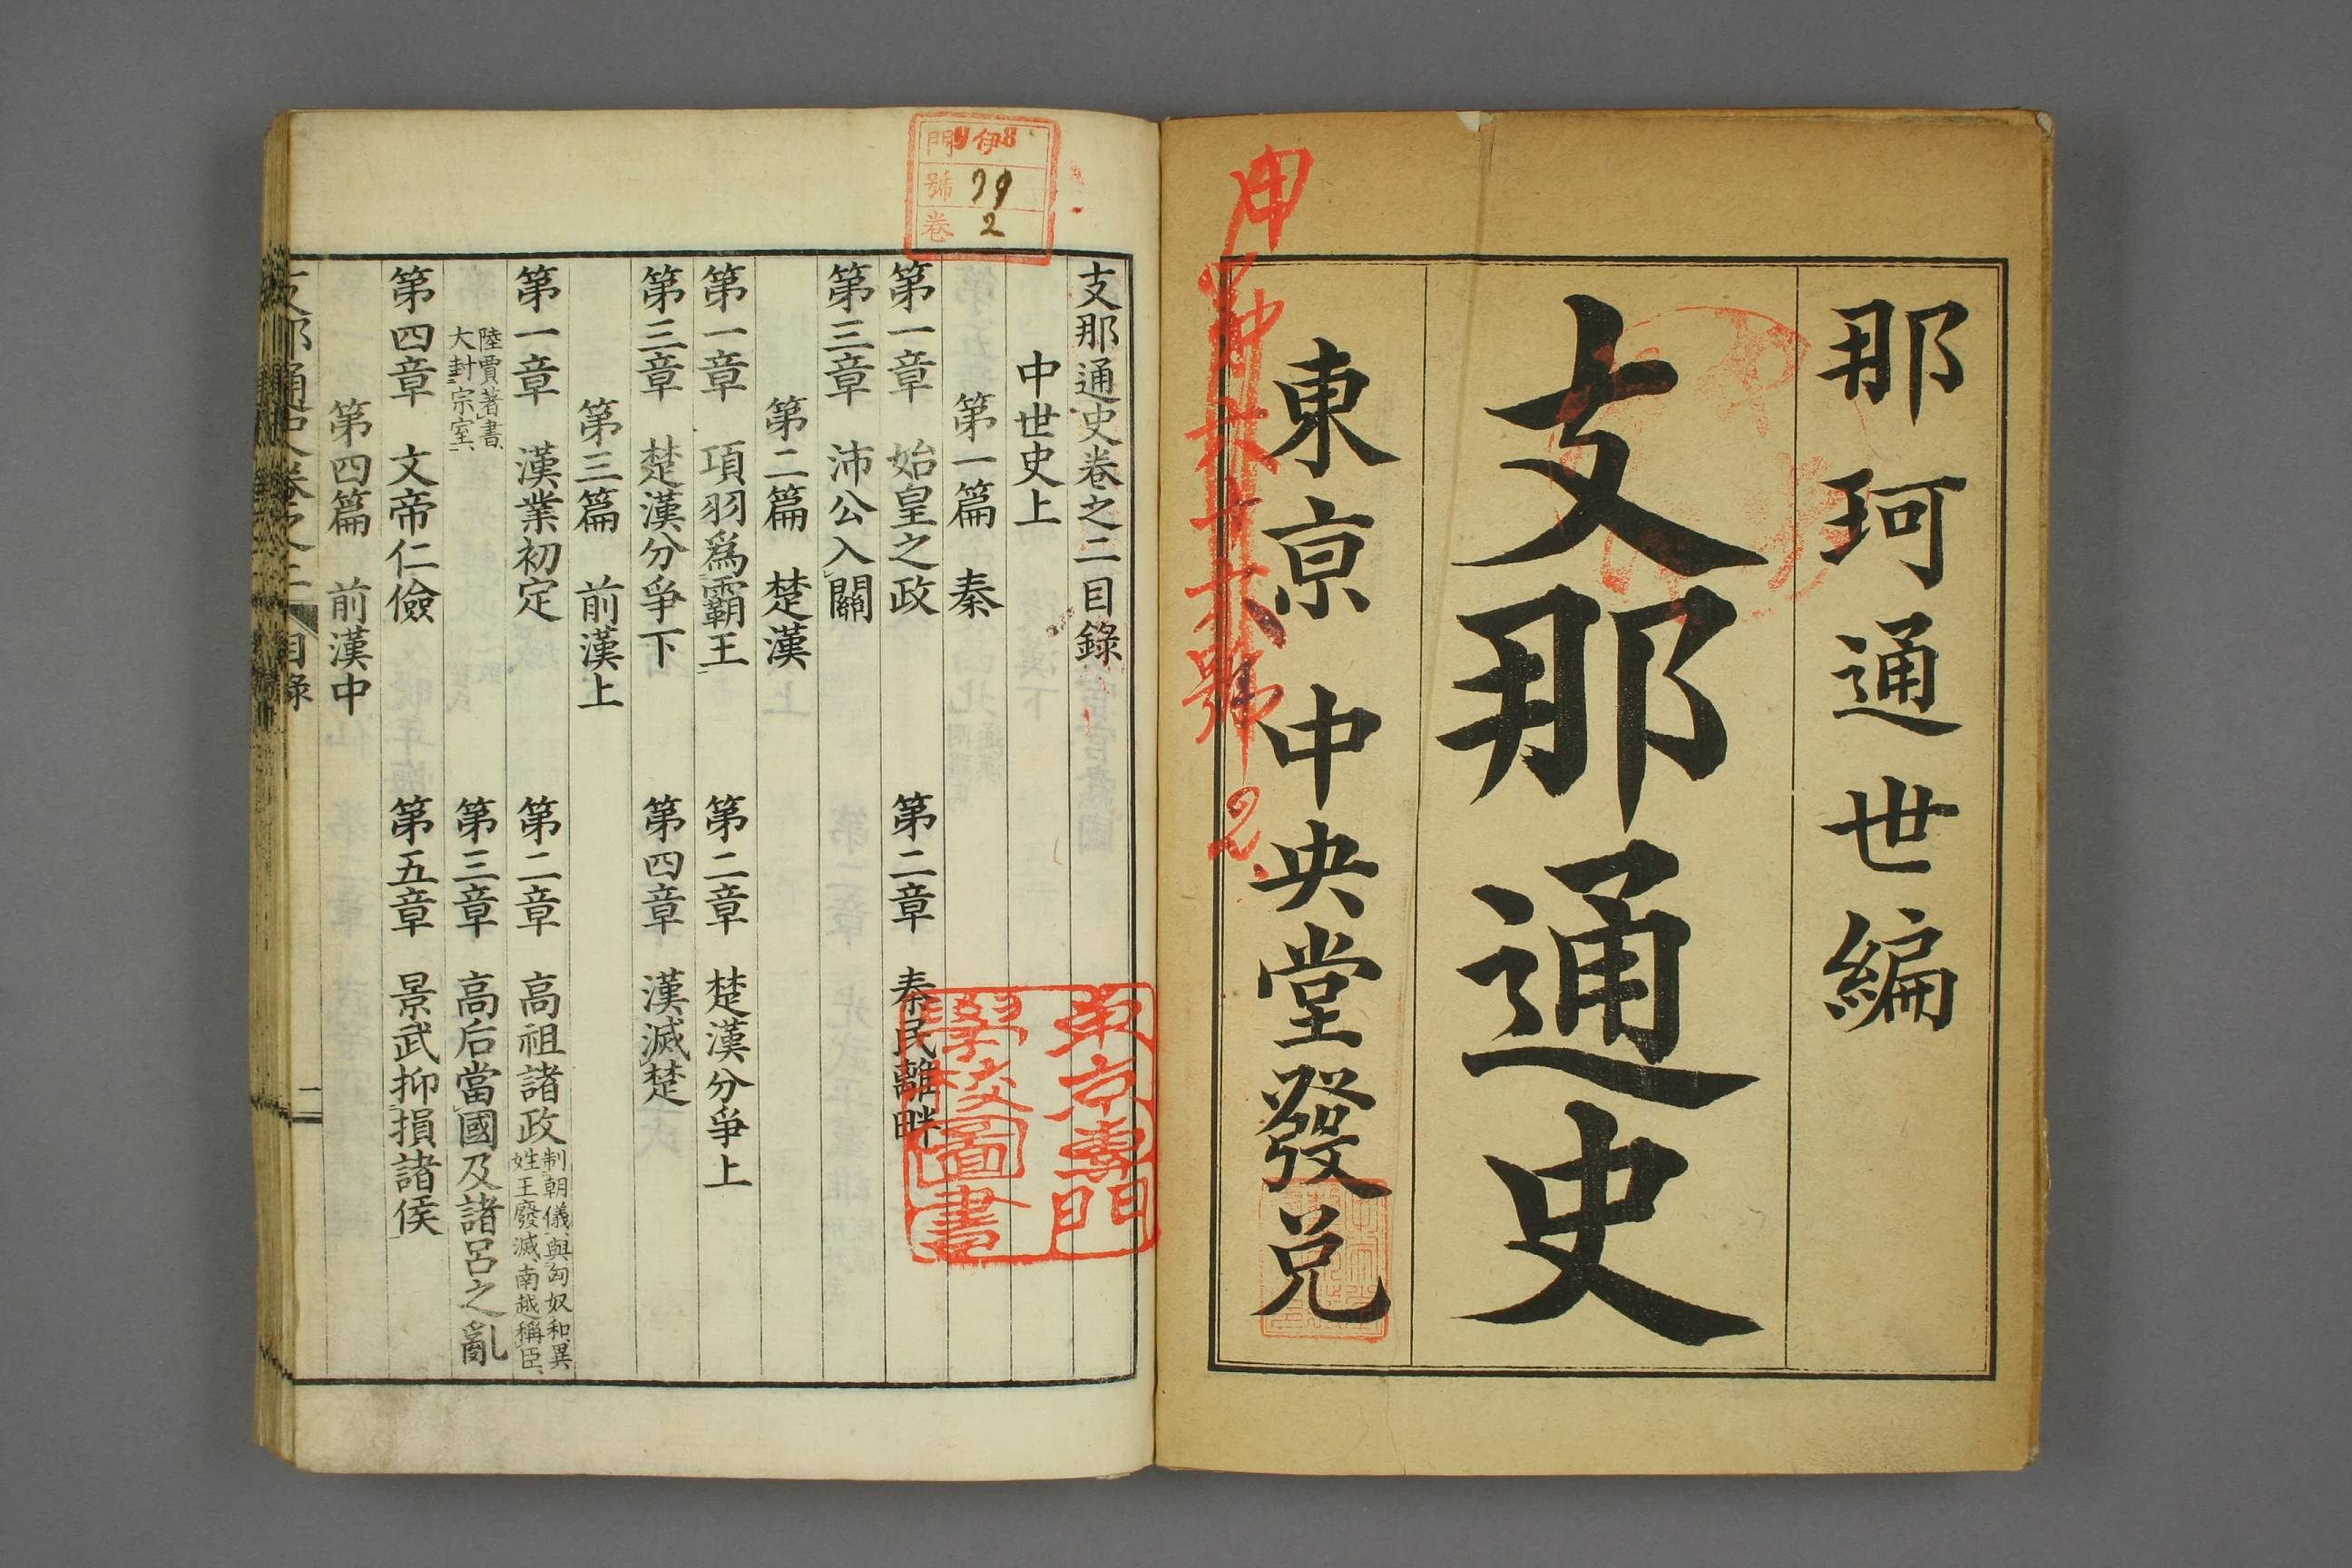 那珂通世編
支那通史
東京 中央堂發兌
伊8
門
號 79
卷 2
支那通史卷之二目錄
中世史上
第一篇 秦
第一章 始皇之政 第二章 秦民離畔
第三章 沛公入關
第二篇 楚漢
第一章 項羽爲霸王 第二章 楚漢分爭上
第三章 楚漢分爭下 第四章 漢滅楚
第三篇 前漢上
第一章 漢業初定 第二章 高祖諸政 制朝儀、與匈奴和、異
姓王廢滅、南越稱臣、
陸賈著書、
大封宗室、 第三章 高后當國及諸呂之亂
第四章 文帝仁儉 第五章 景武抑損諸侯
第四篇 前漢中
支那通史卷之二 目錄 一
東京專門
學校圖書